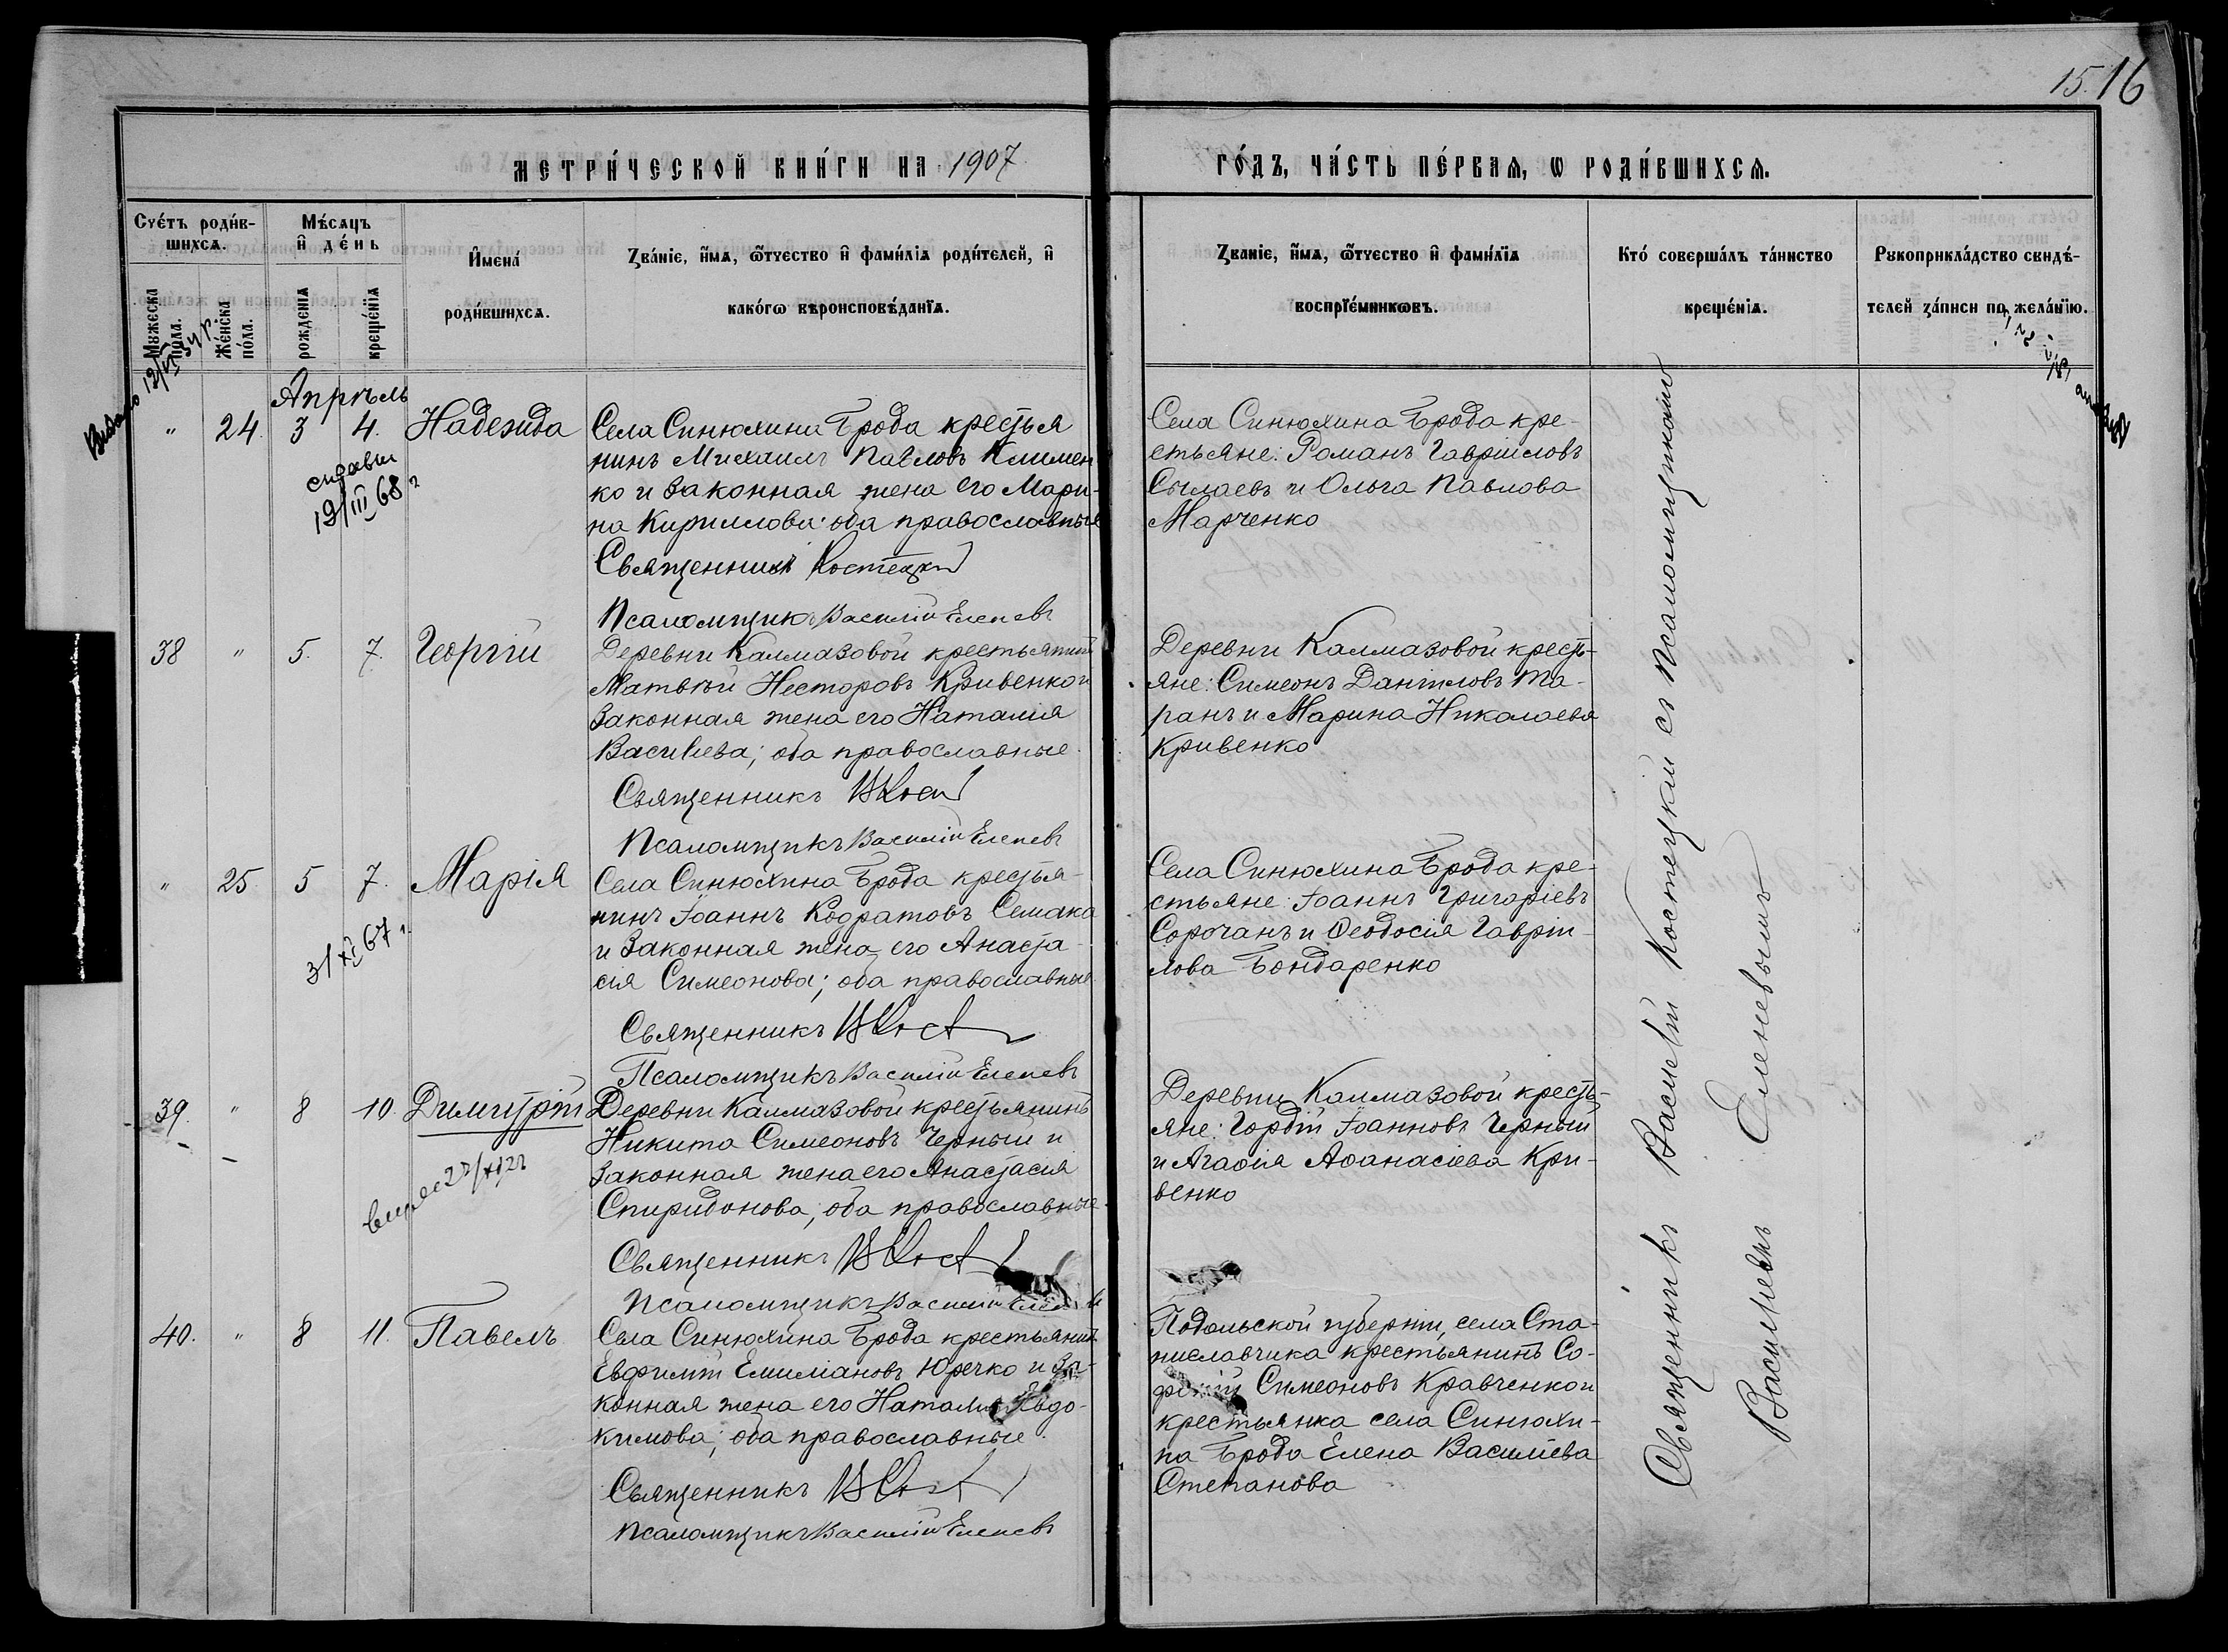 15. 16
МЕТРИ́ЧЕСКОЙ КНИ́ГИ НА 1907
ГО́ДЪ, ЧА́СТЬ ПЕ́РВАѦ, Ѡ РОДИ́ВШИХСѦ.
Счє́тъ роди́в-
шихсѧ.
Мѣ́сѧцъ
и҆ де́нь
Мꙋжеска
по́ла.
Же́нска
по́ла.
рожденїѧ
креще́нїѧ
И҆мена̀
роди́вшихсѧ.
Ꙁва́нїе, и҆́мѧ, ѻ҆́тчество и҆ фами́лїѧ роди́телей, и҆
како́гѡ вѣроисповѣ́данїѧ.
Ꙁванїе, и҆́мѧ, ѻ҆́тчество и҆ фами́лїѧ
воспрїе́мникѡвъ.
Кто̀ соверша́лъ та́инство
креще́нїѧ.
Рꙋкоприкла́дство свидѣ́-
телей ꙁа́писи по жела́нїю.
Апрѣль
" 24. 3 4. Надежда
19/III 68 г
Села Синюхина Брода крестья
нинъ Михаилъ Павловъ Климен
ко и законная жена его Мари-
на Кириллова: оба православные
Священникъ Костецкій
Псаломщикъ Василій Еленевъ
Села Синюхина Брода кре-
стьяне: Романъ Гавріиловъ
Сылаевъ и Ольга Павлова
Марченко
38 " 5. 7. Георгій
Деревни Калмазовой крестьянинъ
Матвѣй Несторовъ Кривенко и
законная жена его Наталія
Василіева; оба православные
Священникъ ВКост
Псаломщикъ Василій Еленевъ
Деревни Калмазовой кресть-
яне: Симеонъ Даніиловъ Та-
ранъ и Марина Николаева
Кривенко
" 25. 5 7. Марія
3/XI 67 г.
Села Синюхина Брода крестья-
нинъ Іоаннъ Кодратовъ Семака
и законная жена его Анаста
сія Симеонова; оба православные
Священникъ ВКост
Псаломщикъ Василій Еленевъ
Села Синюхина Брода кре-
стьяне: Іоаннъ Григоріевъ
Сорочанъ и Ѳеодосія Гавріи-
лова Бондаренко
39. " 8 10. Димитрій
Деревни Калмазовой крестьянинъ
Никита Симеоновъ Черный и
законная жена его Анастасія
Спиридонова; оба православные
Священникъ ВКост
Псаломщикъ Василій
Деревни Калмазовой кресть-
яне: Гордій Іоанновъ Черный
и Агафія Аѳанасіева Кри-
венко
40. " 8 11. Павелъ
Села Синюхина Брода крестьянинъ
Евфимій Емиліановъ Юречко и за-
конная жена его Наталія Евдо-
кимова; оба православные
Священникъ ВКост
Псаломщикъ Василій Еленевъ
Подольской губерніи, села Ста-
ниславчика крестьянинъ Со-
Симеоновъ Кравченко и
крестьянка села Синюхи-
на Брода Елена Василіева
Степанова
Священникъ Василій Костецкій съ Псаломщикомъ
Василіемъ Еленевымъ